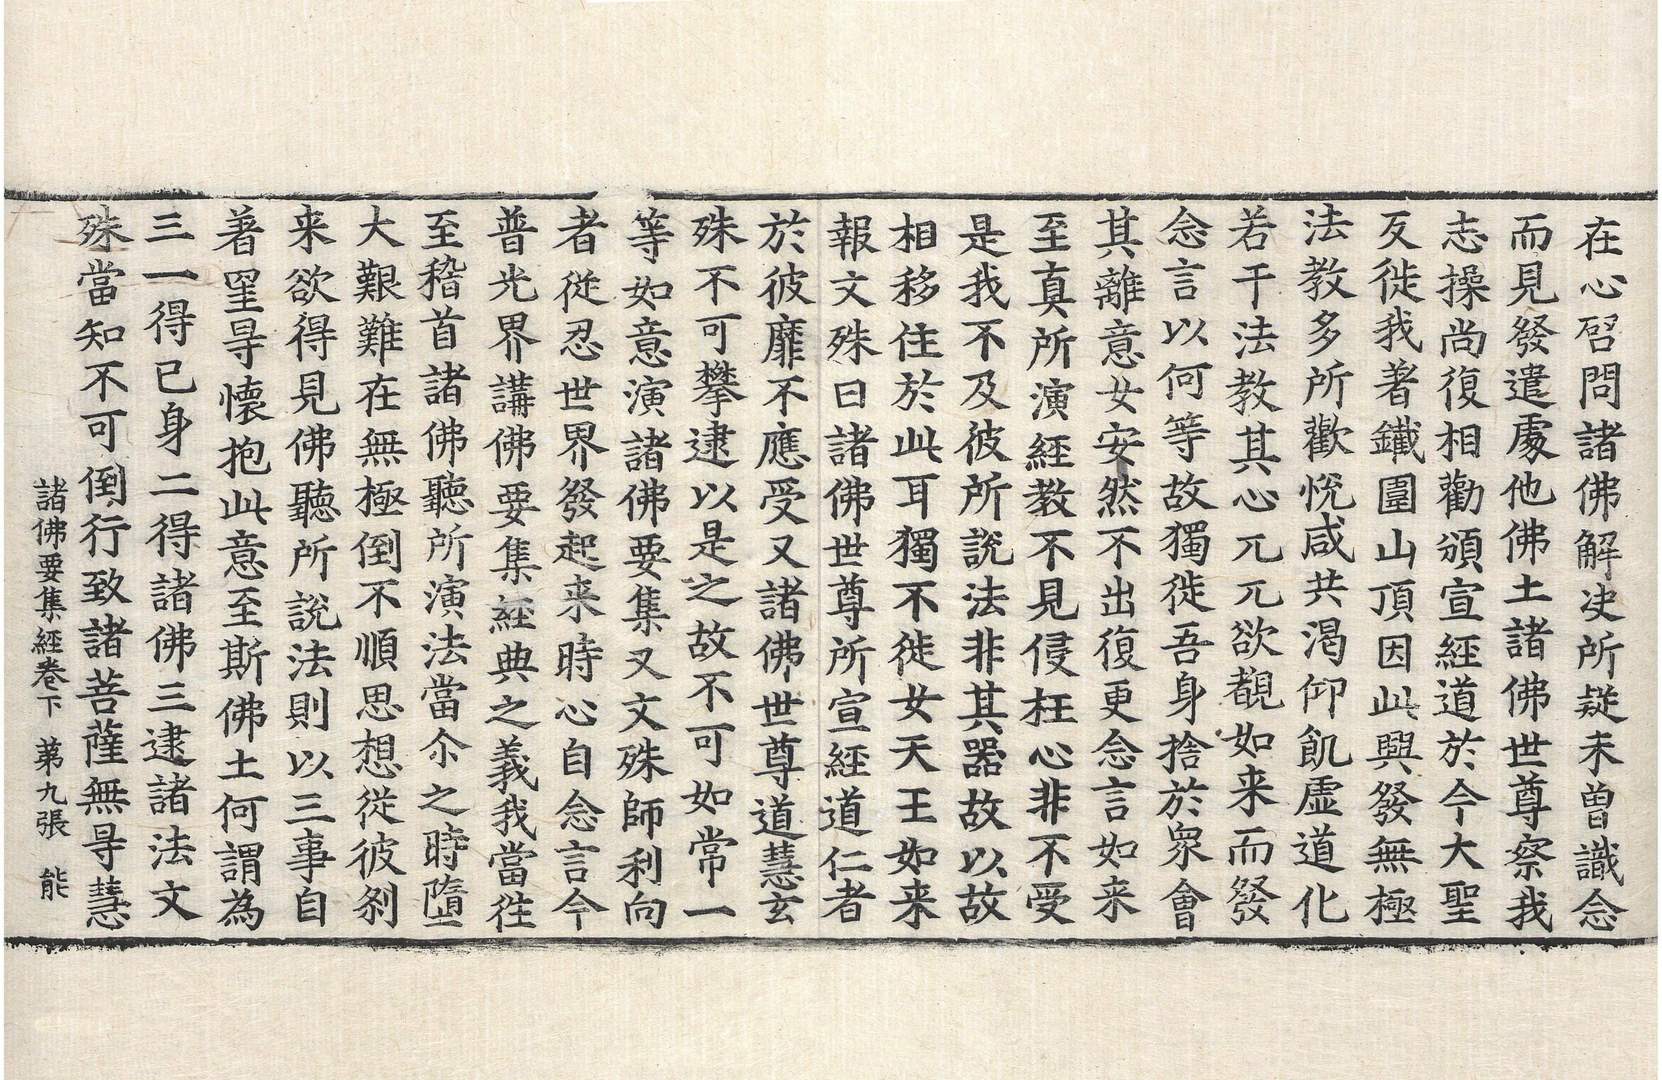 在心啓問諸佛解决所疑未曾識念
而見發遣處他佛土諸佛世尊察我
志操尚復相勸頒宣經道於今大聖
反徙我著鐵圍山頂因此興發無極
法教多所歡悅咸共渴仰飢虛道化
若干法教其心兀兀欲覩如来而發
念言以何等故獨徙吾身捨於衆會
其離意女安然不出復更念言如来
至真所演經教不見侵枉心非不受
是我不及彼所說法非其器故以故
相移住於此耳獨不徙女天王如来
報文殊曰諸佛世尊所宣經道仁者
於彼靡不應受又諸佛世尊道慧玄
殊不可攀逮以是之故不可如常一
等如意演諸佛要集又文殊師利向
者從忍世界發起来時心自念言今
普光界講佛要集經典之義我當往
至稽首諸佛聽所演法當尒之時墮
大艱難在無極倒不順思想從彼刹
来欲得見佛聽所說法則以三事自
著罣㝵懷抱此意至斯佛土何謂為
三一得已身二得諸佛三逮諸法文
殊當知不可倒行致諸菩薩無㝵慧
諸佛要集經卷下 第九張 能